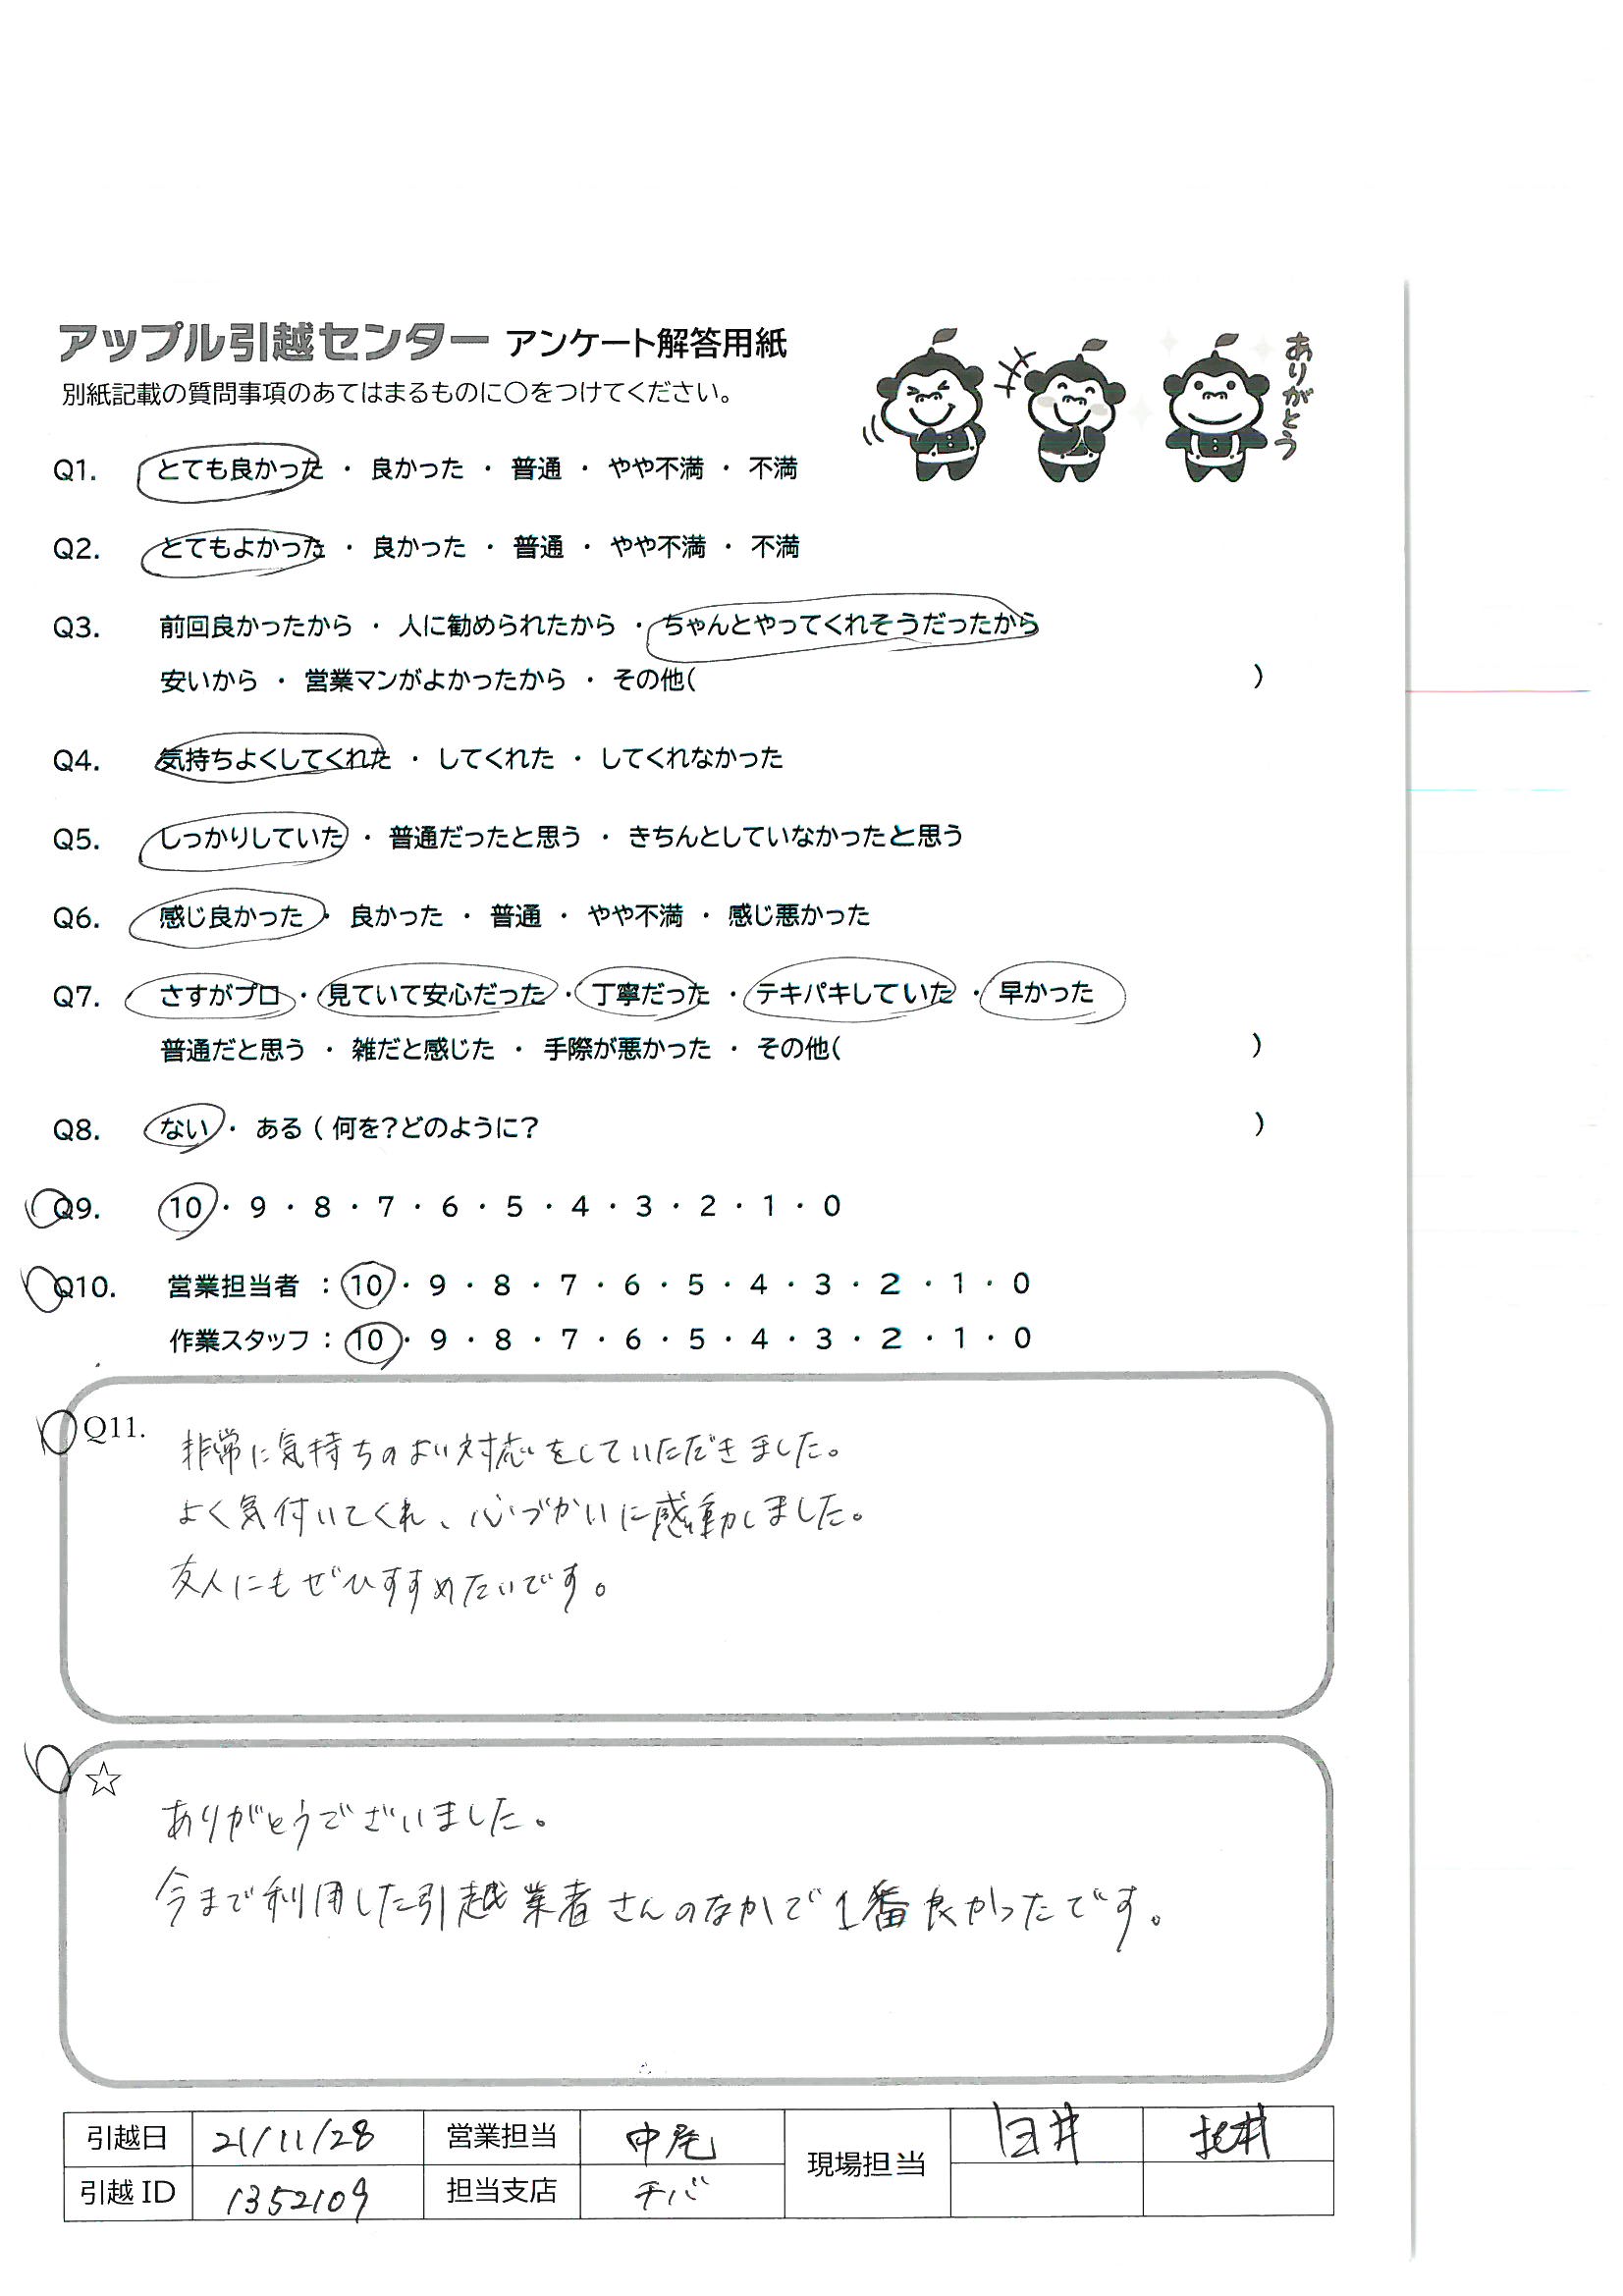 アップル引越センター アンケート解答用紙
別紙記載の質問事項のあてはまるものに〇をつけてください。
ありがとう
Q1. とても良かった ・ 良かった ・ 普通 ・ やや不満 ・ 不満
Q2. とてもよかった ・ 良かった ・ 普通 ・ やや不満 ・ 不満
Q3. 前回良かったから ・ 人に勧められたから ・ ちゃんとやってくれそうだったから
安いから ・ 営業マンがよかったから ・ その他( )
Q4. 気持ちよくしてくれた ・ してくれた ・ してくれなかった
Q5. しっかりしていた ・ 普通だったと思う ・ きちんとしていなかったと思う
Q6. 感じ良かった ・ 良かった ・ 普通 ・ やや不満 ・ 感じ悪かった
Q7. さすがプロ ・ 見ていて安心だった ・ 丁寧だった ・ テキパキしていた ・ 早かった
普通だと思う ・ 雑だと感じた ・ 手際が悪かった ・ その他( )
Q8. ない ・ ある ( 何を?どのように? )
Q9. 10 ・ 9 ・ 8 ・ 7 ・ 6 ・ 5 ・ 4 ・ 3 ・ 2 ・ 1 ・ 0
Q10. 営業担当者 : 10 ・ 9 ・ 8 ・ 7 ・ 6 ・ 5 ・ 4 ・ 3 ・ 2 ・ 1 ・ 0
作業スタッフ : 10 ・ 9 ・ 8 ・ 7 ・ 6 ・ 5 ・ 4 ・ 3 ・ 2 ・ 1 ・ 0
Q11. 非常に気持ちのよい対応をしていただきました。
よく気付いてくれ、心づかいに感動しました。
友人にもぜひすすめたいです。
☆
ありがとうございました。
今まで利用した引越業者さんのなかで1番良かったです。
引越日 21/11/28 営業担当 中尾 現場担当 臼井
引越 ID 1352109 担当支店 チバ